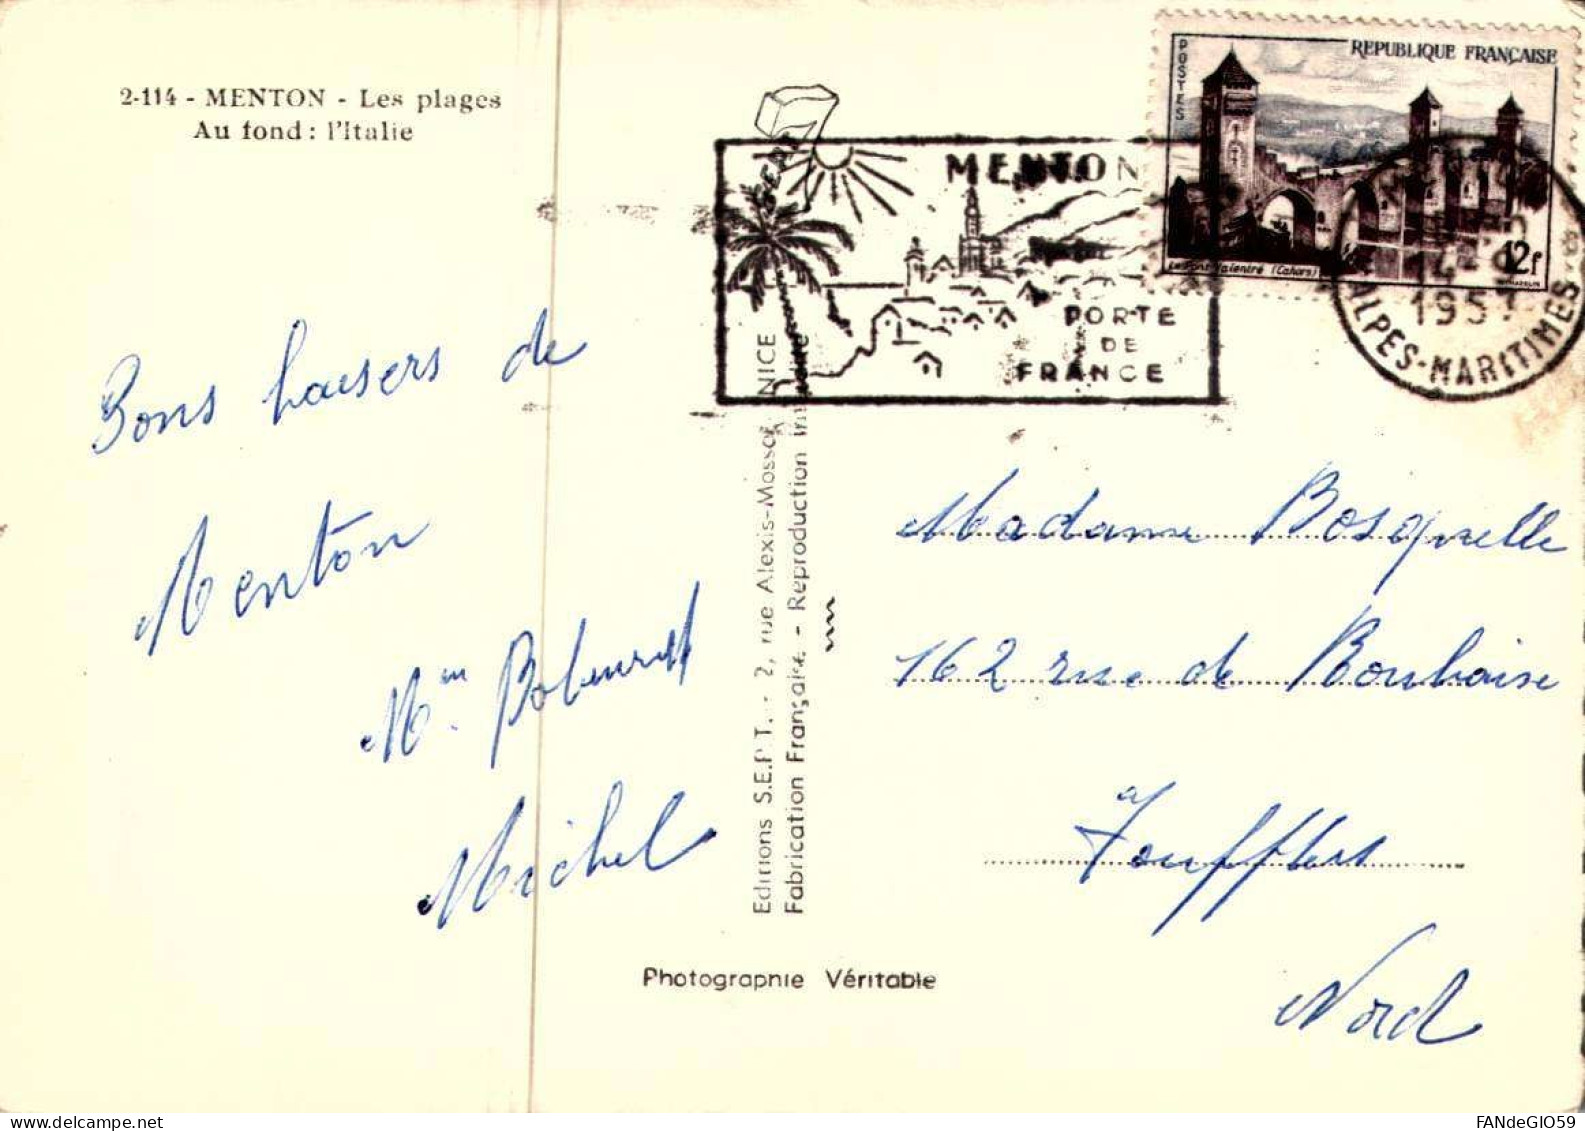 2-114 - MENTON - Les plages
Au fond : l'Italie
MENTON
PORTE
DE
FRANCE
POSTES
REPUBLIQUE FRANÇAISE
Le Pont Valentré (Cahors)
12f
1957
ALPES-MARITIMES
Bons baisers de
Menton
Mme
Michel
Editions S.E.P.T. - 2, rue Alexis-Mossa, NICE
Fabrication Française - Reproduction interdite
Madame Bosquelle
162 rue de Boubaise
à
Toufflers
Nord
Photographie Véritable
FANdeGIO59